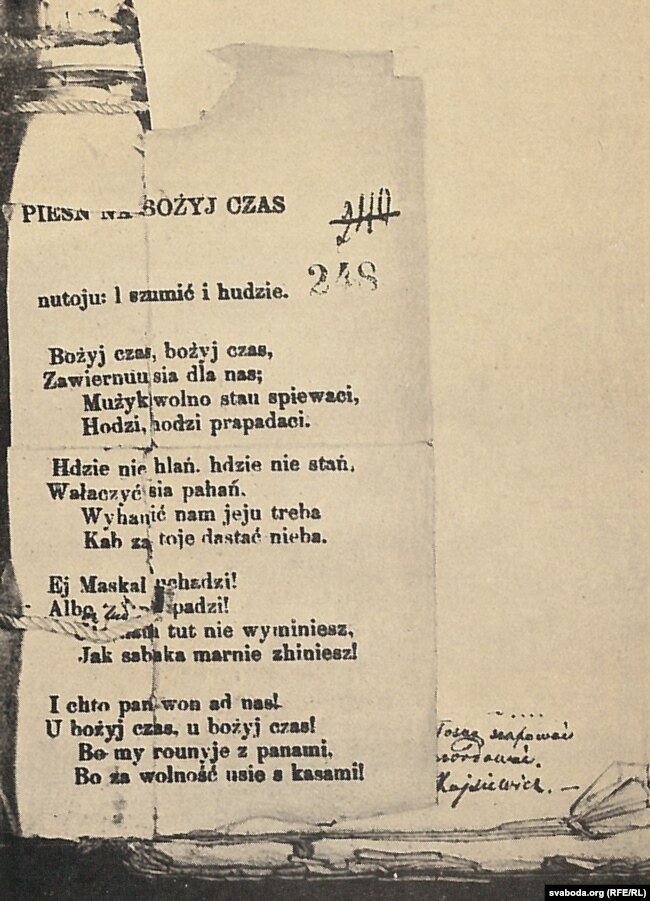 PIESŃ NA BOŻYJ CZAS
248
nutoju: I szumić i hudzie.
Bożyj czas, bożyj czas,
Zawiernuu sia dla nas;
Mużyk wolno stau spiewaci,
Hodzi, hodzi prapadaci.
Hdzie nie hlań. hdzie nie stań,
Wałaczyć sia pahań.
Wyhanić nam jeju treba
Kab za toje dastać nieba.
Ej Maskal uchadzi!
Albo padzi!
tut nie wyminiesz,
Jak sabaka marnie zhiniesz!
I chto pan won ad nas!
U bożyj czas, u bożyj czas!
Bo my rounyje z panami,
Bo za wolność usie s kasami!
svaboda.org (RFE/RL)